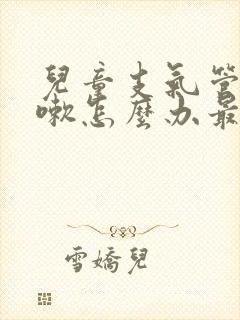 兒童支氣管
嗽怎麼办最
雪嬌兒